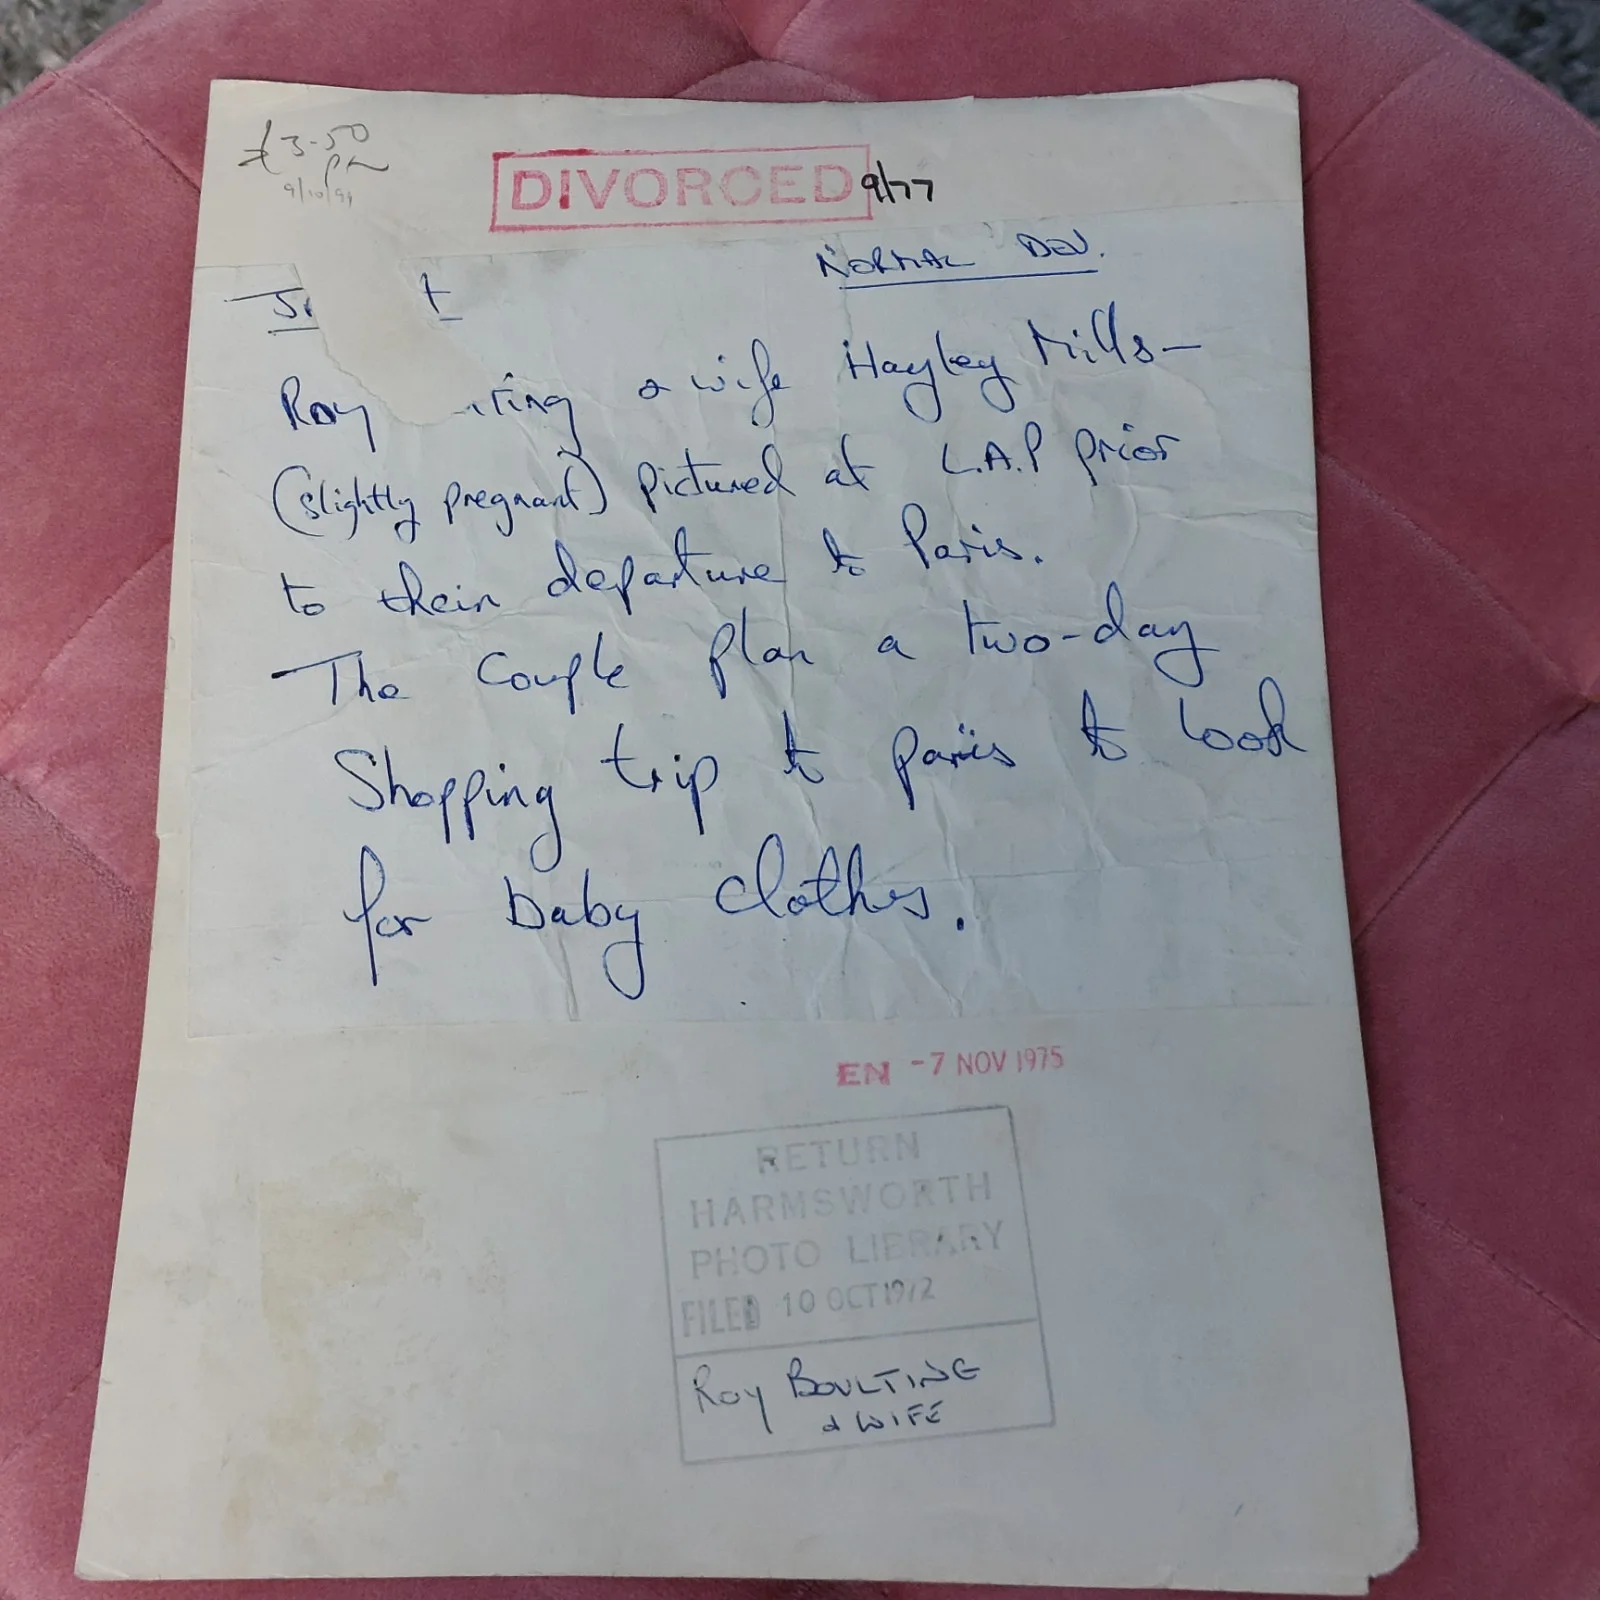 £3-50
9/10/91
DIVORCED 9/77
NORMAL DEV.
Roy ting & wife Hayley Mills—
(slightly pregnant) pictured at L.A.P prior
to their departure to Paris.
The Couple plan a two-day
Shopping trip to paris to look
for baby clothes.
EN -7 NOV 1975
RETURN
HARMSWORTH
PHOTO LIBRARY
FILED 10 OCT 1972
Roy BOULTING
& WIFE